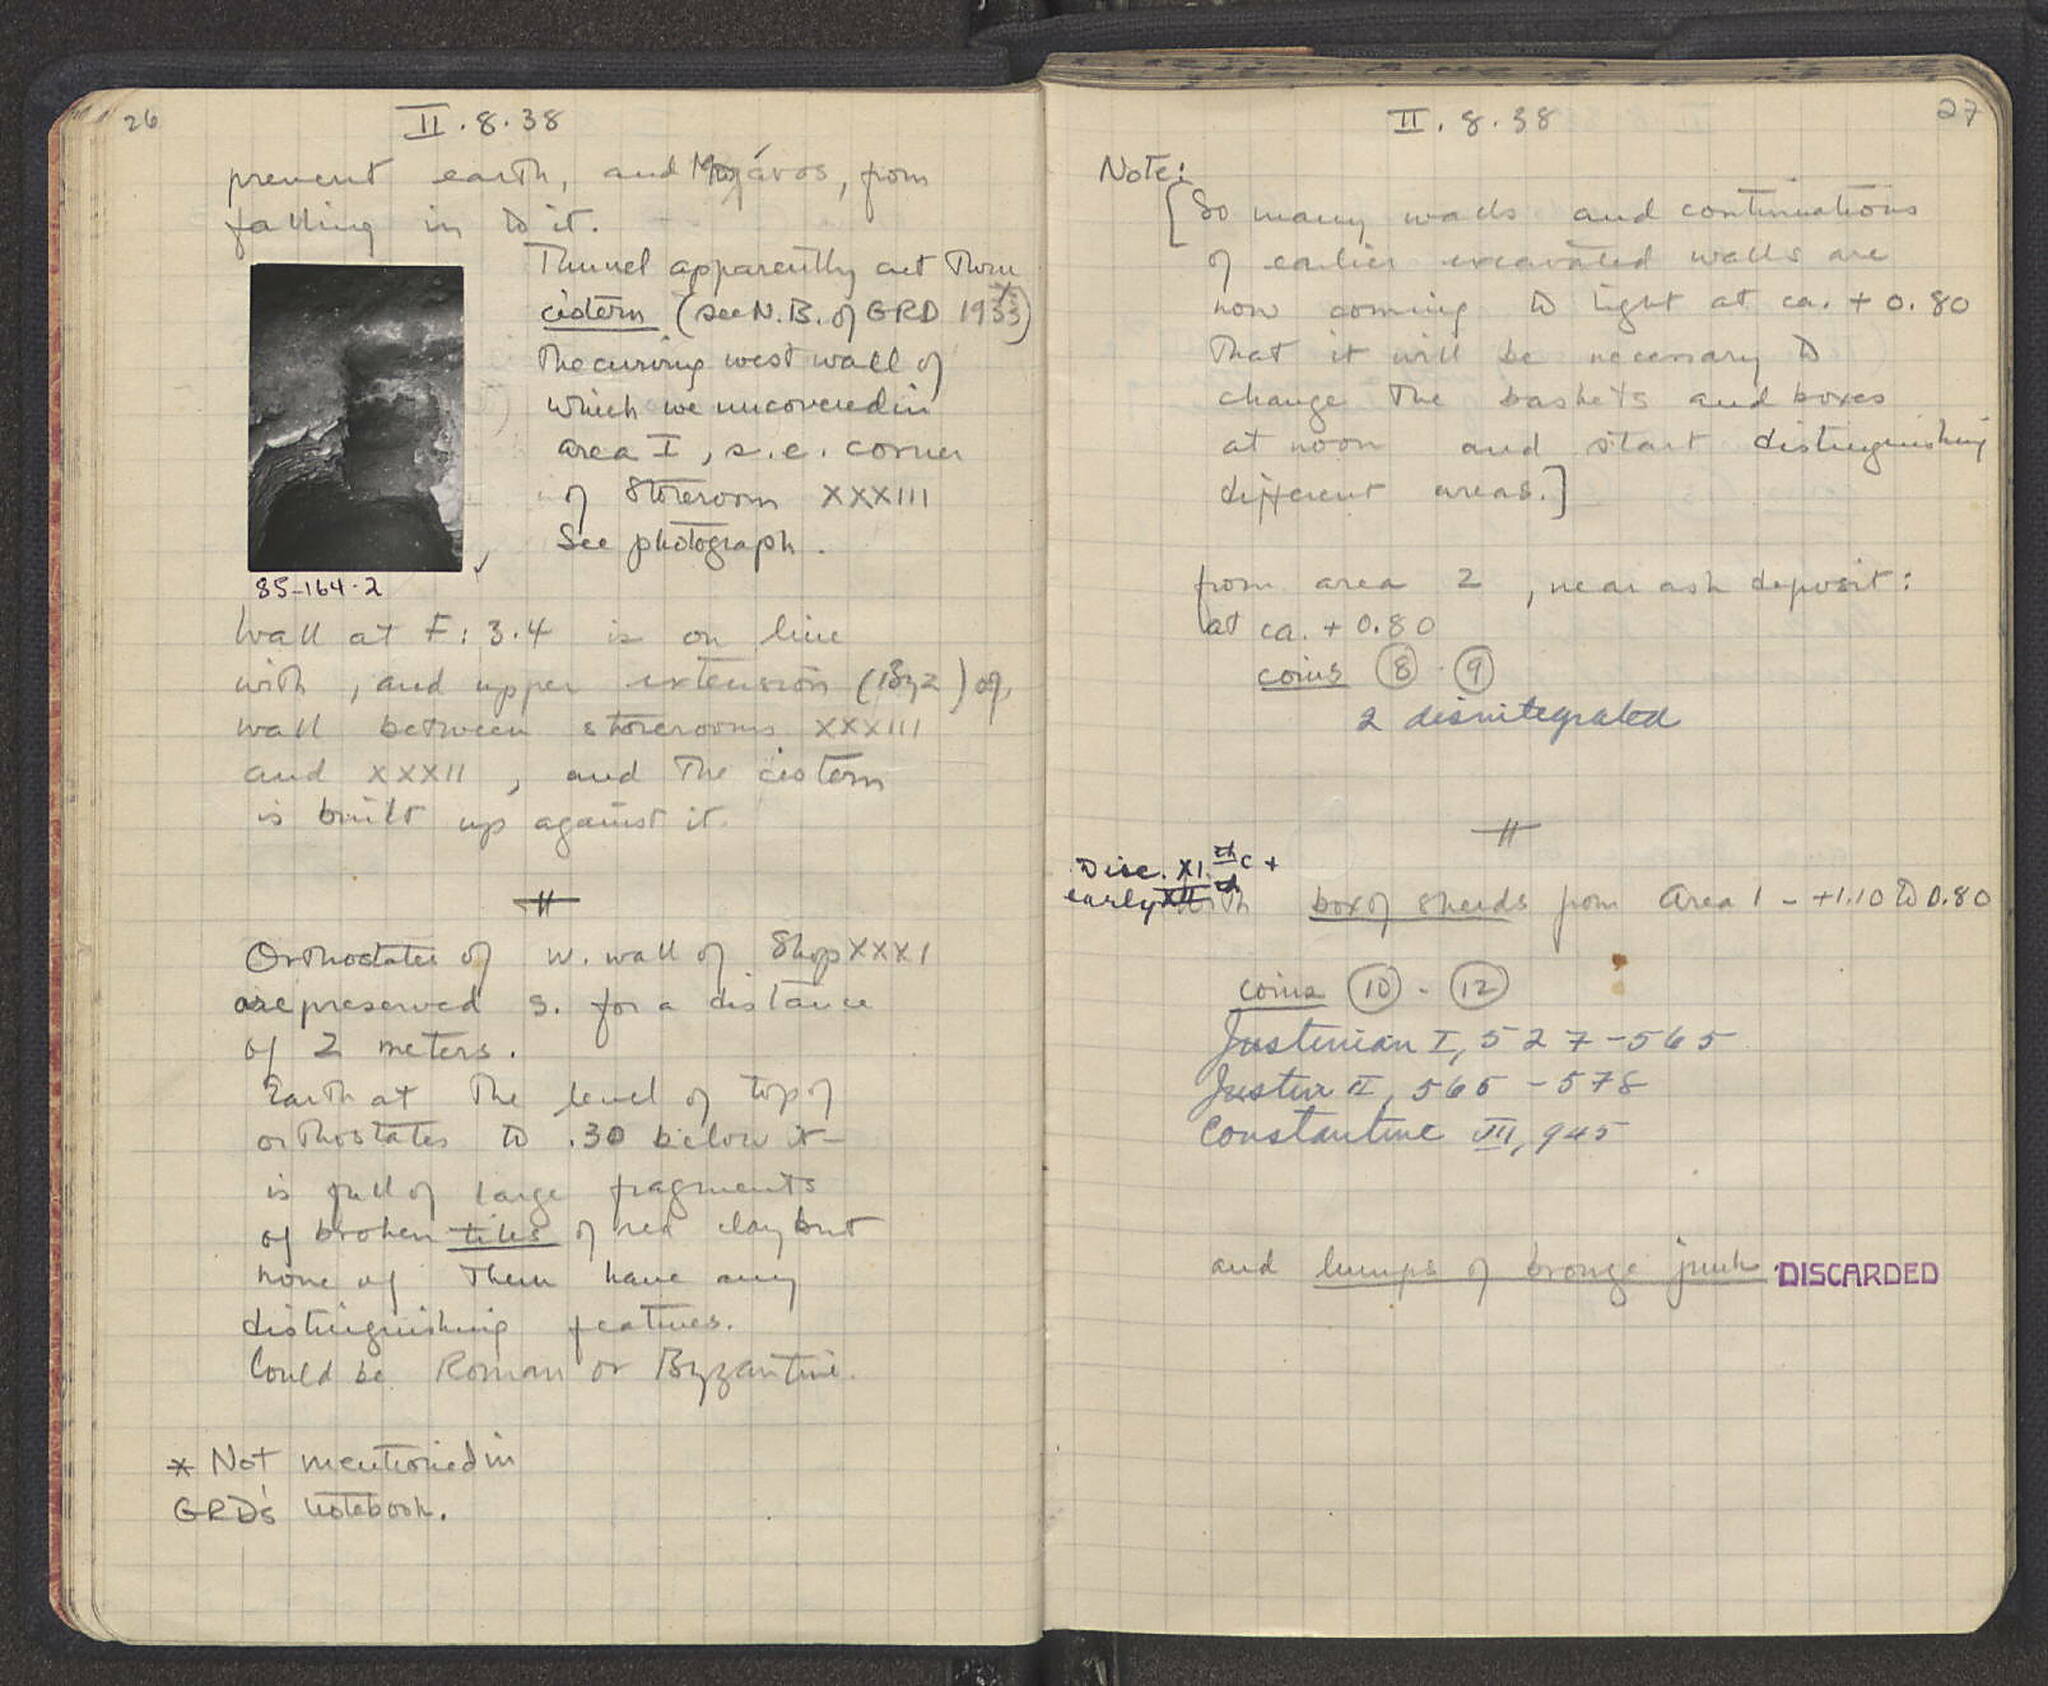 26
II.8.38
prevent earth, and , from
falling in to it.
Tunnel apparently cut from
cistern (see N.B. of GRD 1933)*
the curving west wall of
which we uncovered in
area I, s.e. corner
of Storeroom XXXIII
See photograph.
85-164-2
Wall at F:3.4 is on line
with, and upper extension (Byz) of,
wall between storerooms XXXIII
and XXXII, and the cistern
is built up against it.
Orthostates of w. wall of Shop XXXI
are preserved s. for a distance
of 2 meters.
Earth at the level of top of
orthostates to .30 below it
is full of large fragments
of broken tiles of red clay but
none of them have any
distinguishing features.
Could be Roman or Byzantine.
* Not mentioned in
GRD's notebook.
27
II.8.38
Note:
[So many walls and continuations
of earlier excavated walls are
now coming to light at ca. +0.80
that it will be necessary to
change the baskets and boxes
at noon and start distinguishing
different areas.]
from area 2, near ash deposit:
at ca. +0.80
coins 8 - 9
2 disintegrated
Disc. XI.th c +
early XII th
box of sherds from Area 1 - +1.10 to 0.80
coins 10 - 12
Justinian I, 527-565
Justin II, 565-578
Constantine VII, 945
and lumps of bronze junk DISCARDED